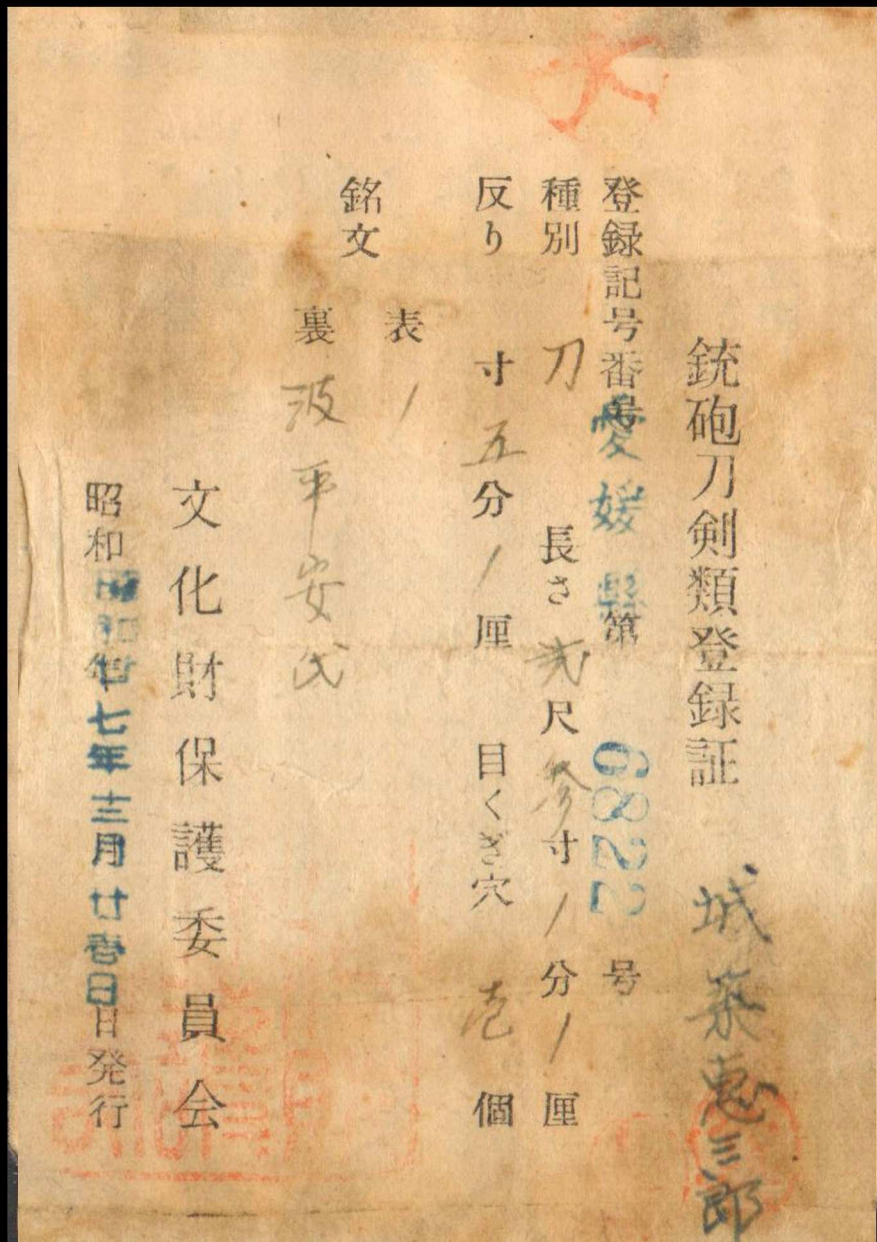 銃砲刀剣類登録証
城築惠三郎
登録記号番号 愛媛縣 第 6822 号
種別 刀 長さ 弐尺 参寸 / 分 / 厘
反り 寸 五分 / 厘 目くぎ穴 壱 個
銘文
表 /
裏 波平安氏
文化財保護委員会
昭和 昭和廿七年 三月 廿壱日 日発行